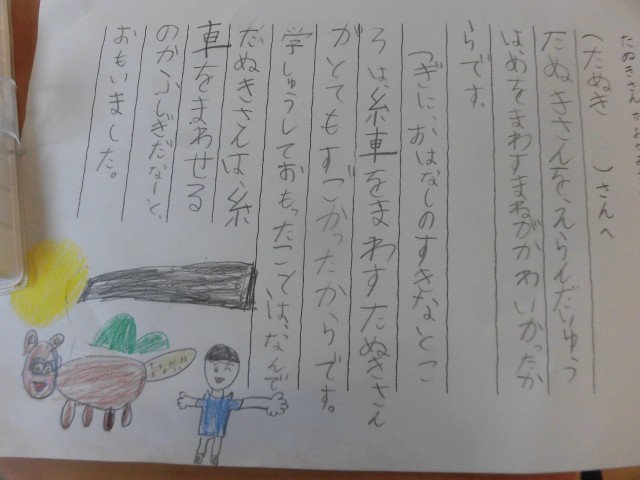 たぬきさん
（たぬき　　　）さんへ
たぬきさんを、えらんだりゆう
は、めをまわすまねがかわいかったか
らです。
つぎに、おはなしのすきなとこ
ろは、糸車をまわすたぬきさん
がとてもすごかったからです。
学しゅうしておもったことは、なんで
たぬきさんは、糸
車をまわせる
のかふしぎだなーと、
おもいました。